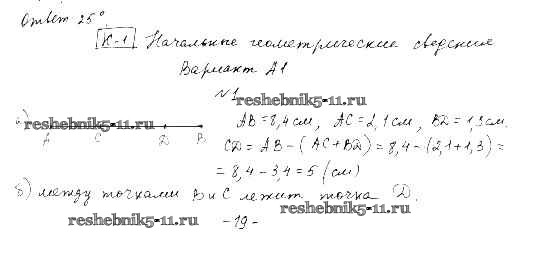 Ответ 25°.
К-1 Начальные геометрические сведения
Вариант А1
№1
reshebnik5-11.ru
а) AB = 8,4 см, AC = 2,1 см, BD = 1,3 см.
reshebnik5-11.ru
A C D B
CD = AB - (AC + BD) = 8,4 - (2,1 + 1,3) =
= 8,4 - 3,4 = 5 (см)
б) между точками B и C лежит точка D.
reshebnik5-11.ru
reshebnik5-11.ru
- 19 -